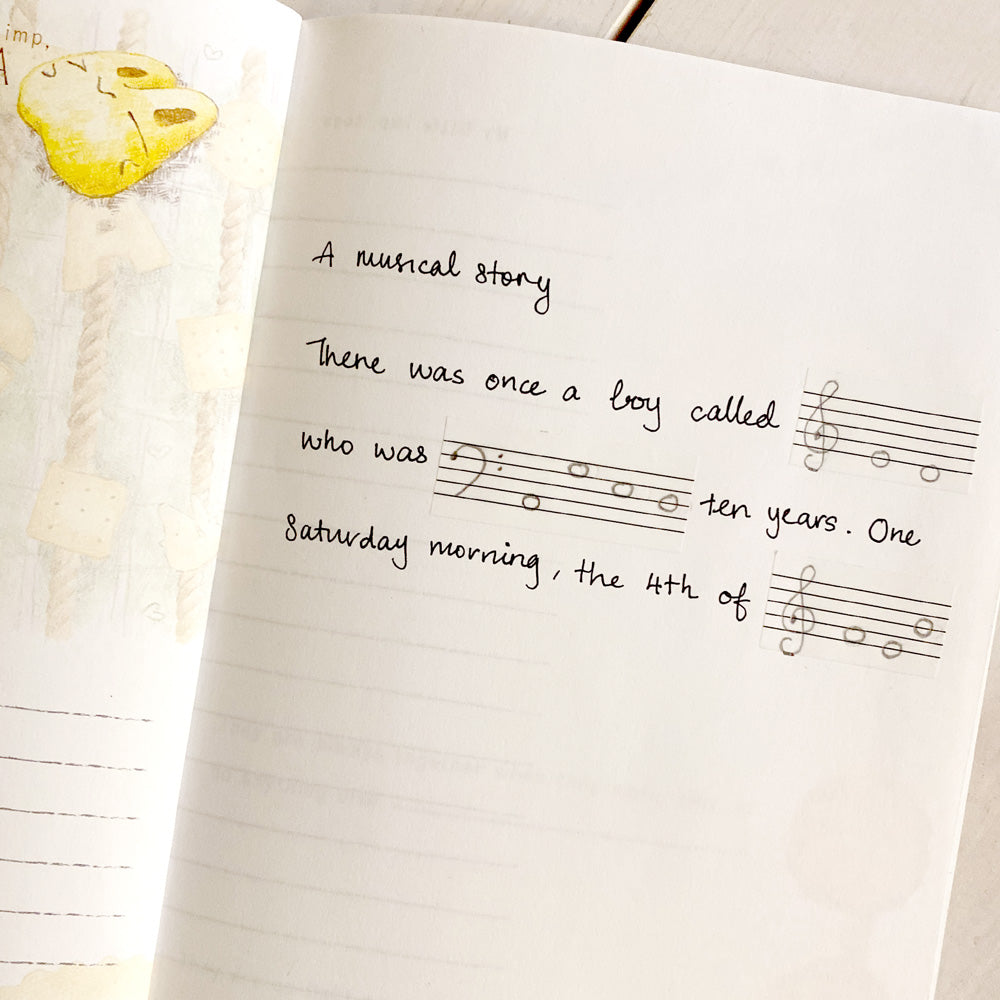 imp,
A musical story
There was once a boy called
who was ten years. One
Saturday morning, the 4th of